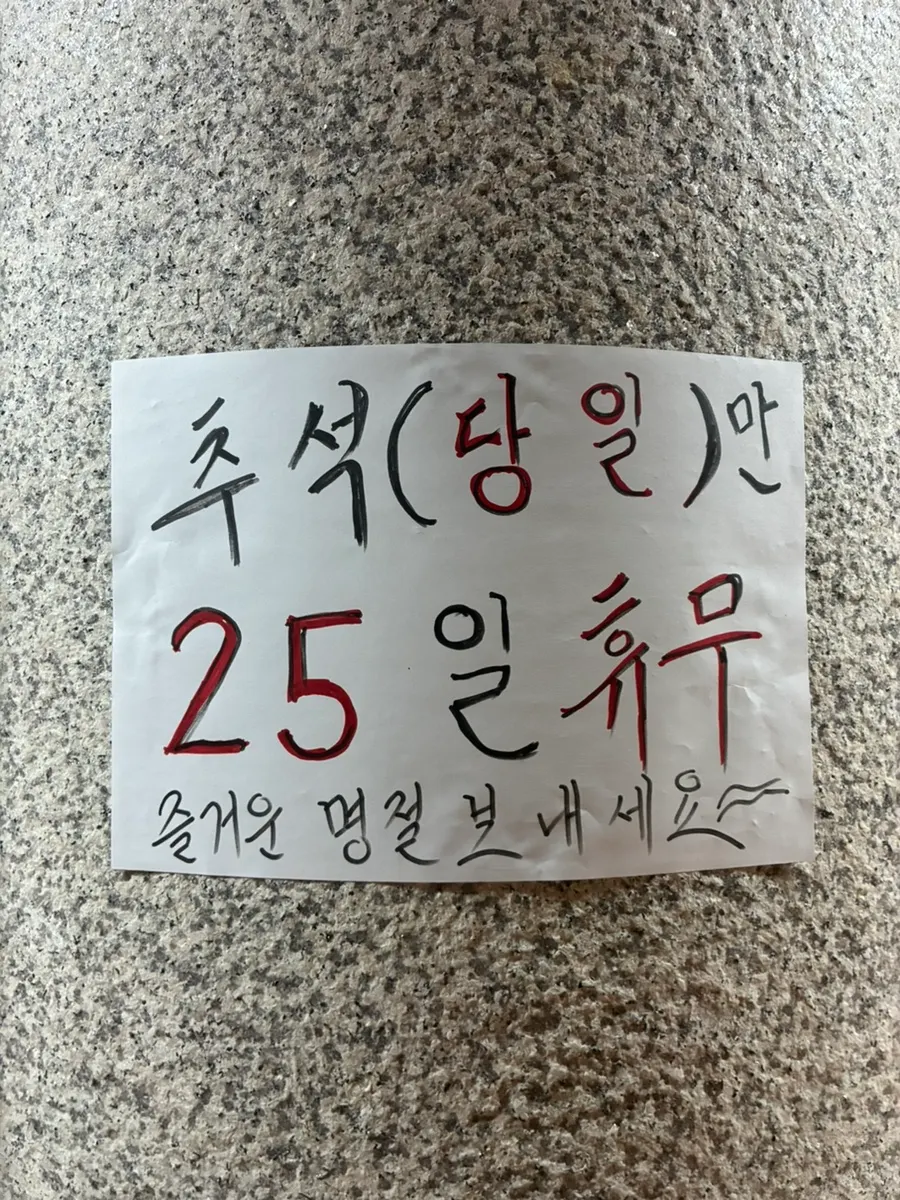 추석(당일)만
25일 휴무
즐거운 명절 보내세요~